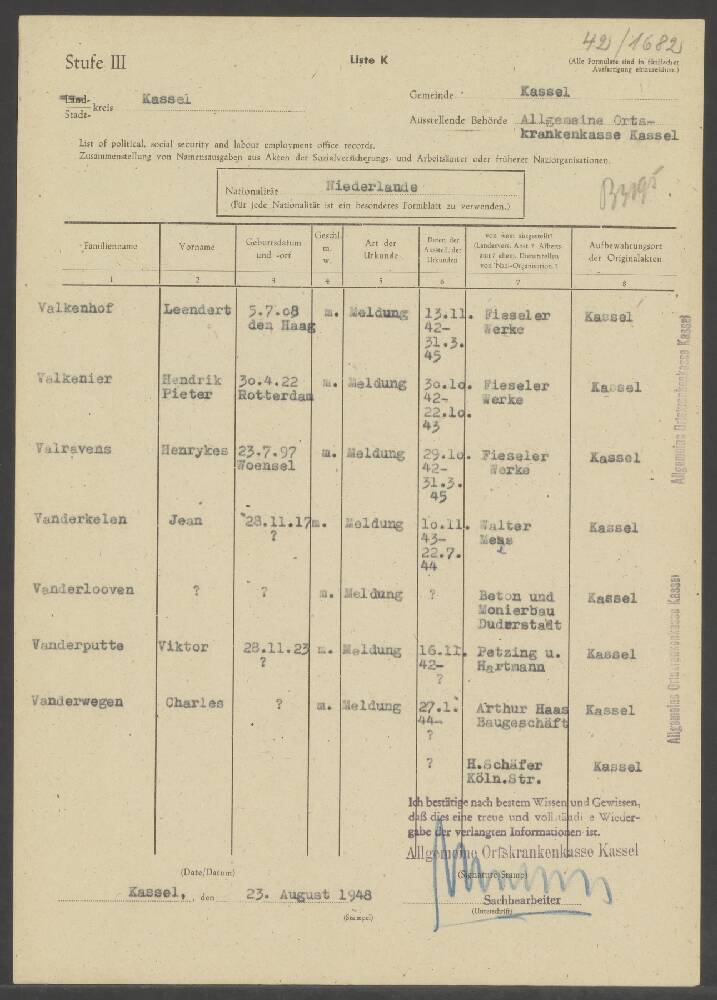 42/1682
Stufe III
Liste K
(Alle Formulare sind in
Ausfertigung einzureichen)
Land-
Stadt- kreis Kassel
Gemeinde Kassel
Ausstellende Behörde Allgemeine Orts-
krankenkasse Kassel
List of political, social security and labour employment office records.
Zusammenstellung von Namensausgaben aus Akten der Sozialversicherungs- und Arbeitsämter oder früherer Naziorganisationen.
Nationalität Niederlande
(Für jede Nationalität ist ein besonderes Formblatt zu verwenden.)
Familienname Vorname Geburtsdatum und -ort Geschl. m. w. Art der Urkunde Daten der Ausstell. der Urkunden von wem ausgestellt? (Landesvers. Anst.? Arbeitsamt? ehem. Dienststellen von Nazi-Organisation?) Aufbewahrungsort der Originalakten
1 2 3 4 5 6 7 8
Valkenhof Leendert 5.7.08 m. Meldung 13.11. Fieseler Kassel
den Haag 42- Werke
31.3.
45
Valkenier Hendrik 30.4.22 m. Meldung 30.10. Fieseler Kassel
Pieter Rotterdam 42- Werke
22.10.
43
Valravens Henrykes 23.7.97 m. Meldung 29.10. Fieseler Kassel
Woensel 42- Werke
31.3.
45
Vanderkelen Jean 28.11.17 m. Meldung 10.11. Walter Kassel
? 43-
22.7.
44
Vanderlooven ? ? m. Meldung ? Beton und Kassel
Monierbau
Duderstadt
Vanderputte Viktor 28.11.23 m. Meldung 16.11. Petzing u. Kassel
? 42- Hartmann
?
Vanderwegen Charles ? m. Meldung 27.1. Arthur Haas Kassel
44- Baugeschäft
?
? H.Schäfer Kassel
Köln.Str.
Allgemeine Ortskrankenkasse Kassel
Allgemeine Ortskrankenkasse Kassel
Ich bestätige nach bestem Wissen und Gewissen,
daß dies eine treue und vollständi e Wieder-
gabe der verlangten Informationen ist.
Allgemeine Ortskrankenkasse Kassel
(Date/Datum) (Signature Stamp)
Kassel, den 23. August 1948 Sachbearbeiter
(Stempel) (Unterschrift)